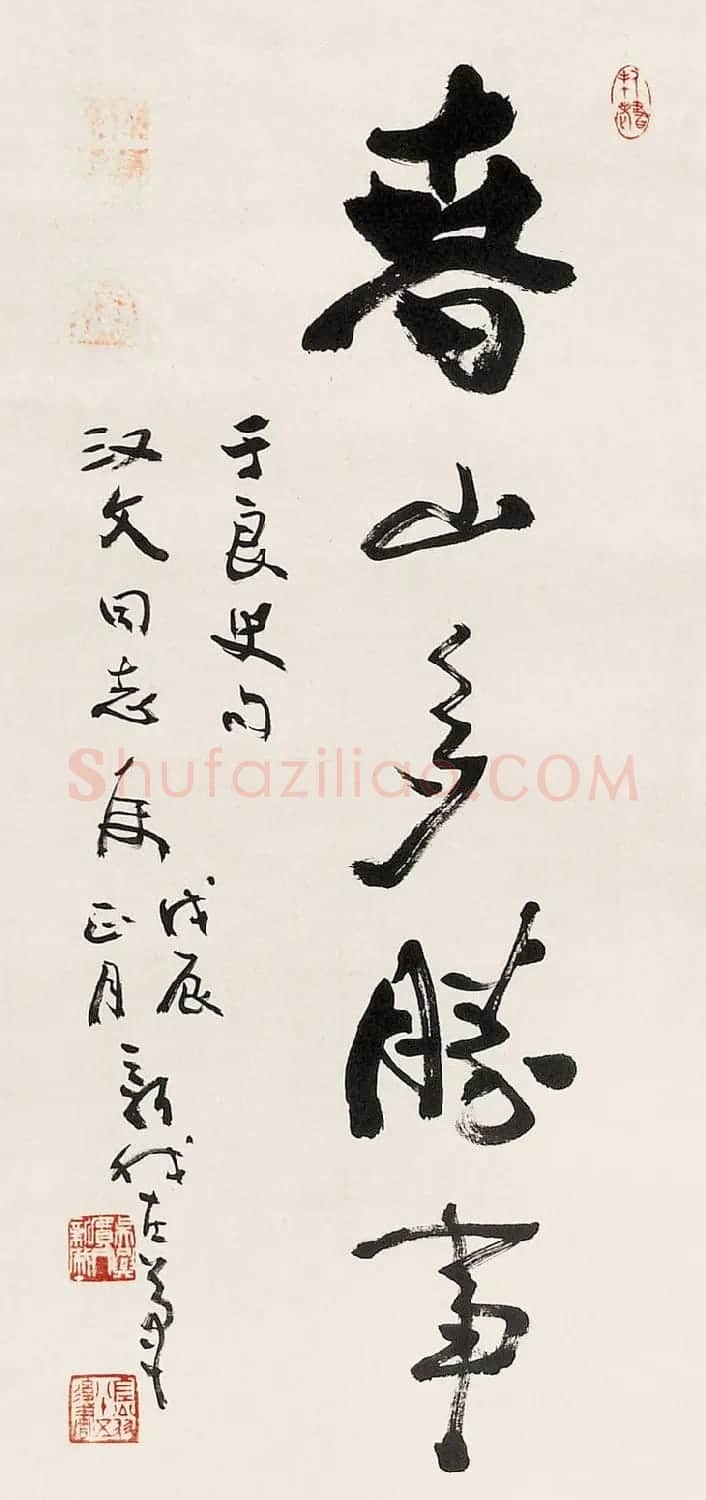 春山多勝事
于良史句
汉文同志
戊辰
正月
新我左筆
Shufaziliao.COM